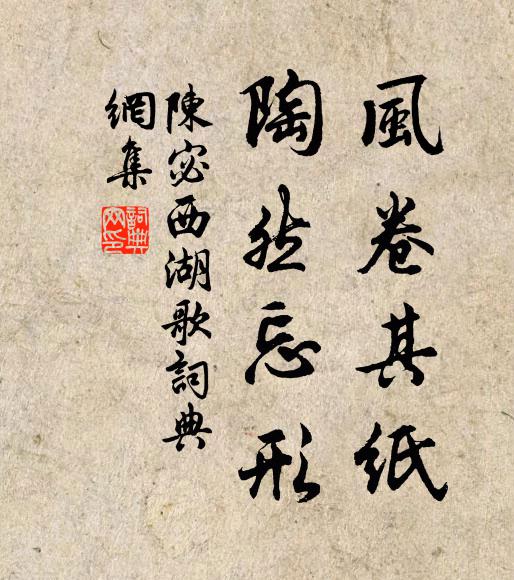 風卷其紙
陶然忘形
陳宓西湖歌詞典
網集
詞典網印